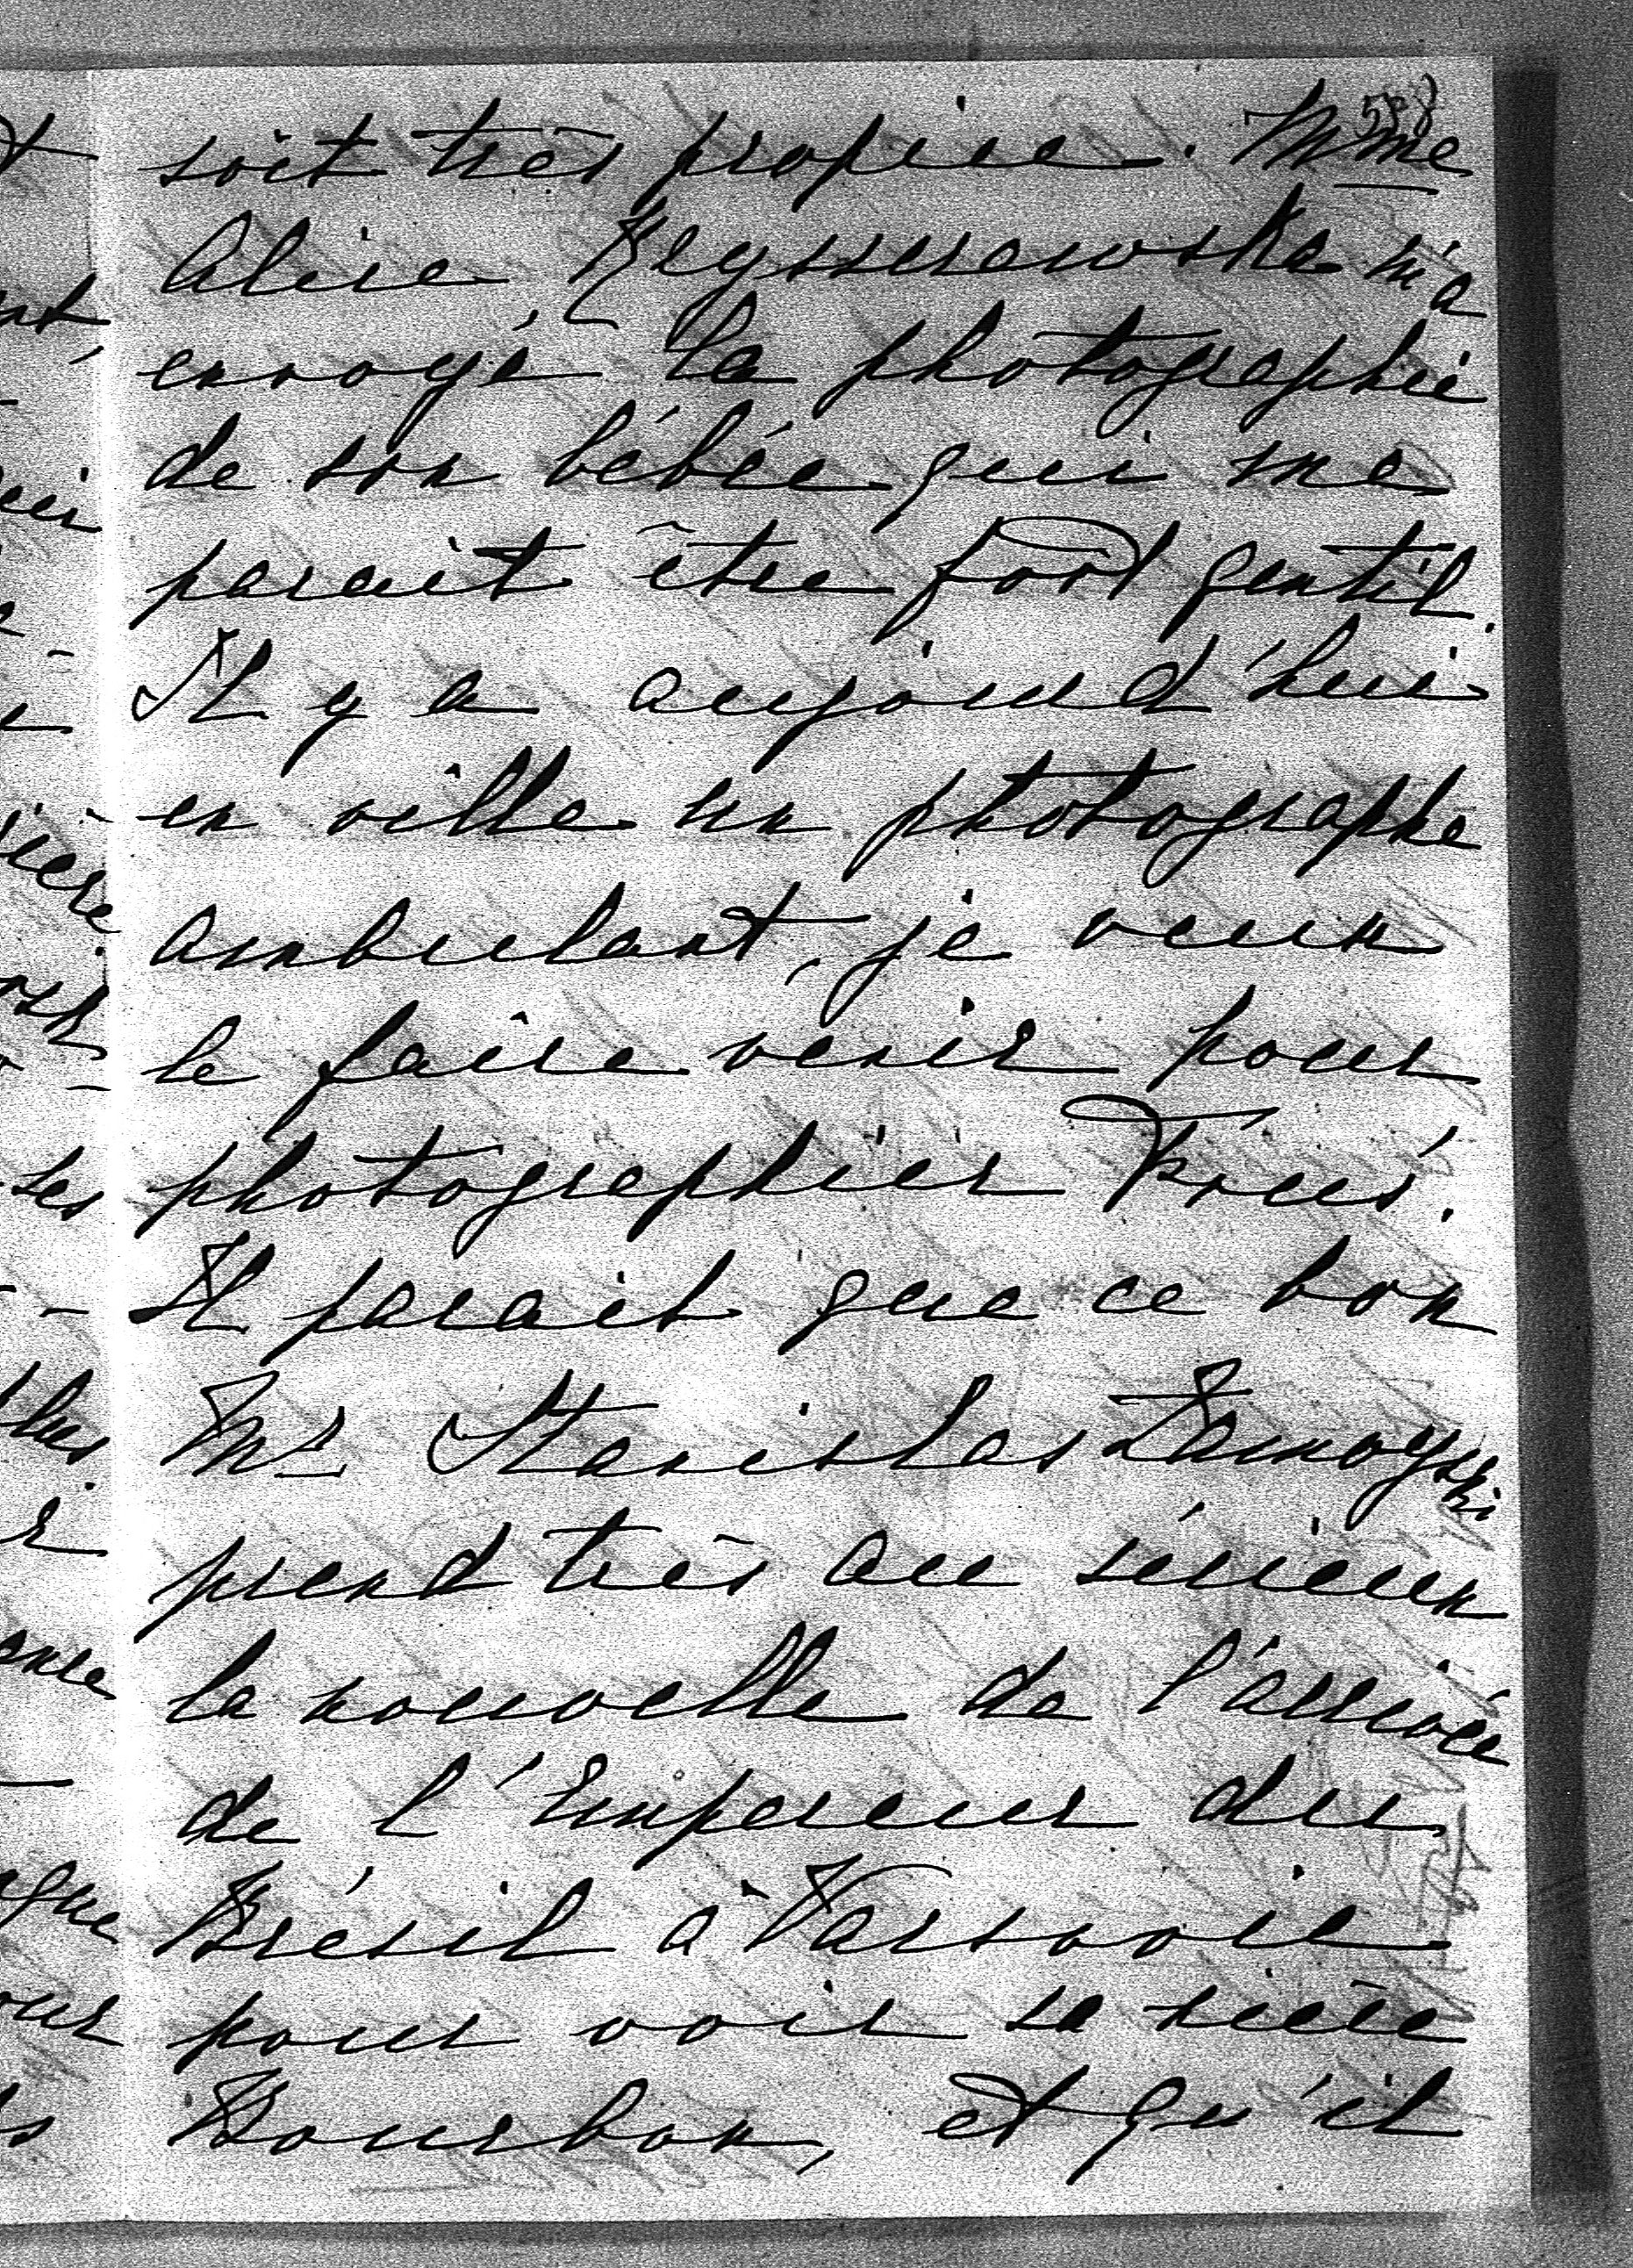 558
soit très propice. Mme
Alice m'a
envoyé la photographie
de son bébée qui me
parait être fort gentil.
Il y a aujourd'hui
en ville un photographe
ambulant, je veux
le faire venir pour
photographier
Il parait que ce bon
Mr Stanislas Zamoyski
prend très au sérieux
la nouvelle de l'arrivée
de l'Empereur du
Brésil à Varsovie
pour voir sa nièce
Bourbon, et qu'il